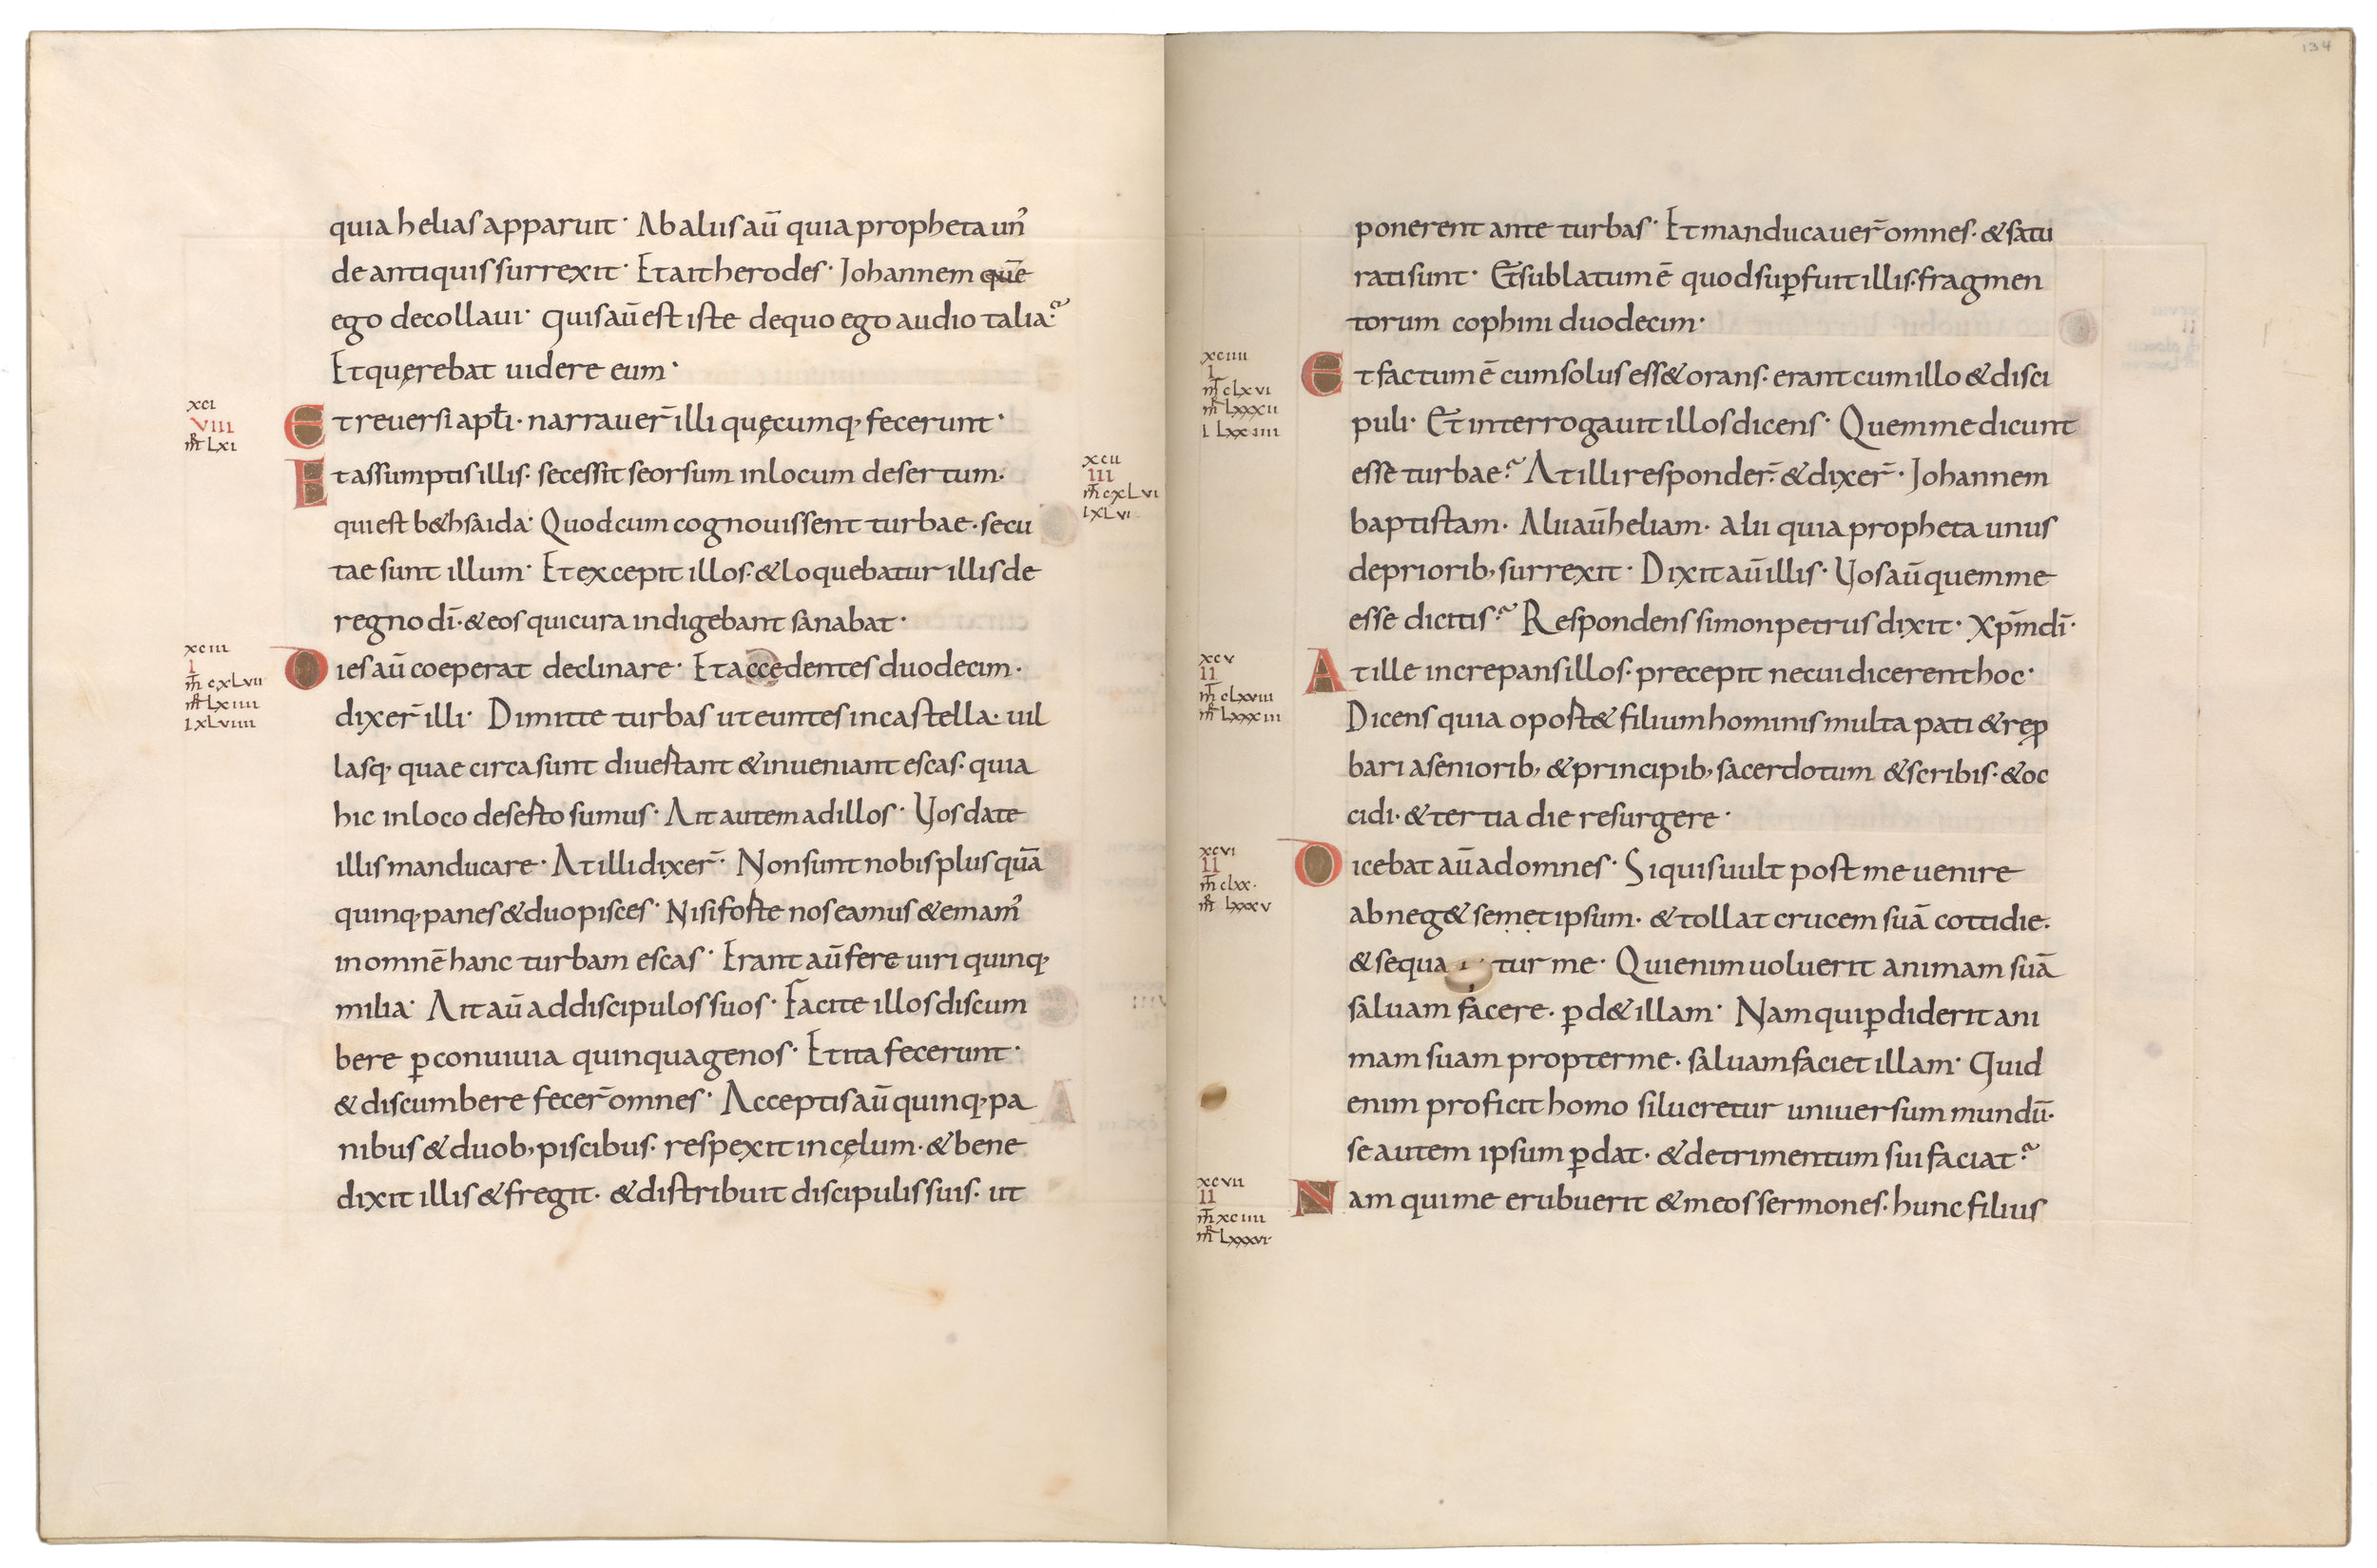 quia helias apparuit· Ab aliis aū quia propheta un᾽
de antiquis surrexit· Et ait herodes· Johannem quē
ego decollaui· quis aū est iste de quo ego audio talia?
Et quęrebat uidere eum·
xci
VIII
mr̄ Lxi
Et reuersi aptł̄i· narrauer̄ illi quęcumq, fecerunt·
Et assumptis illis· secessit seorsum in locum desertum·
xcii
III
mt̄ cxLvi
i xLvi
qui est b&hsaida· Quod cum cognouissent turbae· secu
tae sunt illum· Et excepit illos· & loquebatur illis de
regno dī· & eos qui cura indigebant sanabat·
xciii
I
mt̄ cxLvii
mr̄ Lxiiii
i xLviiii
Dies aū coeperat declinare· Et accedentes duodecim·
dixer̄ illi· Dimitte turbas ut euntes in castella· uil
lasq, quae circa sunt diuertant & inueniant escas· quia
hic in loco deserto sumus· Ait autem ad illos· Vos date
illis manducare· At illi dixer̄· Non sunt nobis plus quā
quinq, panes & duo pisces· Nisi forte nos eamus & emam᾽
in omnē hanc turbam escas· Erant aū fere uiri quinq,
milia· Ait aū ad discipulos suos· Facite illos discum
bere ꝑ conuiuia quinquagenos· Et ita fecerunt·
& discumbere fecer̄ omnes· Acceptis aū quinq, pa
nibus & duob, piscibus· respexit in cęlum· & bene
dixit illis & fregit· & distribuit discipulis suis· ut
134
ponerent ante turbas· Et manducauer̄ omnes· & satu
rati sunt· Et sublatum ē quod suꝑfuit illis· fragmen
torum cophini duodecim·
xciiii
I
mt̄ cLxvi
mr̄ Lxxxii
i Lxxiiii
Et factum ē cum solus ess& orans· erant cum illo & disci
puli· Et interrogauit illos dicens· Quem me dicunt
esse turbae? At illi responder̄· & dixer̄· Johannem
baptistam· Alii aū heliam· alii quia propheta unus
de priorib, surrexit· Dixit aū illis· Vos aū quem me
esse dicitis? Respondens simon petrus dixit· Xp̄m dī·
xcv
II
mt̄ cLxviii
mr̄ Lxxxiii
At ille increpans illos· precepit ne cui dicerent hoc·
Dicens quia oport& filium hominis multa pati & reꝓ
bari a seniorib, & principib, sacerdotum & scribis· & oc
cidi· & tertia die resurgere·
xcvi
II
mt̄ cLxx·
mr̄ Lxxxv
Dicebat aū ad omnes· Si quis uult post me uenire
abneg& semet ipsum· & tollat crucem suā cottidie·
& sequa tur me· Qui enim uoluerit animam suā
saluam facere· ꝑd& illam· Nam qui ꝑdiderit ani
mam suam propter me· saluam faciet illam· Quid
enim proficit homo si lucretur uniuersum mundū·
se autem ipsum ꝑdat· & detrimentum sui faciat?
xcvii
II
mt̄ xciiii
mr̄ Lxxxvi
Nam qui me erubuerit & meos sermones· hunc filius